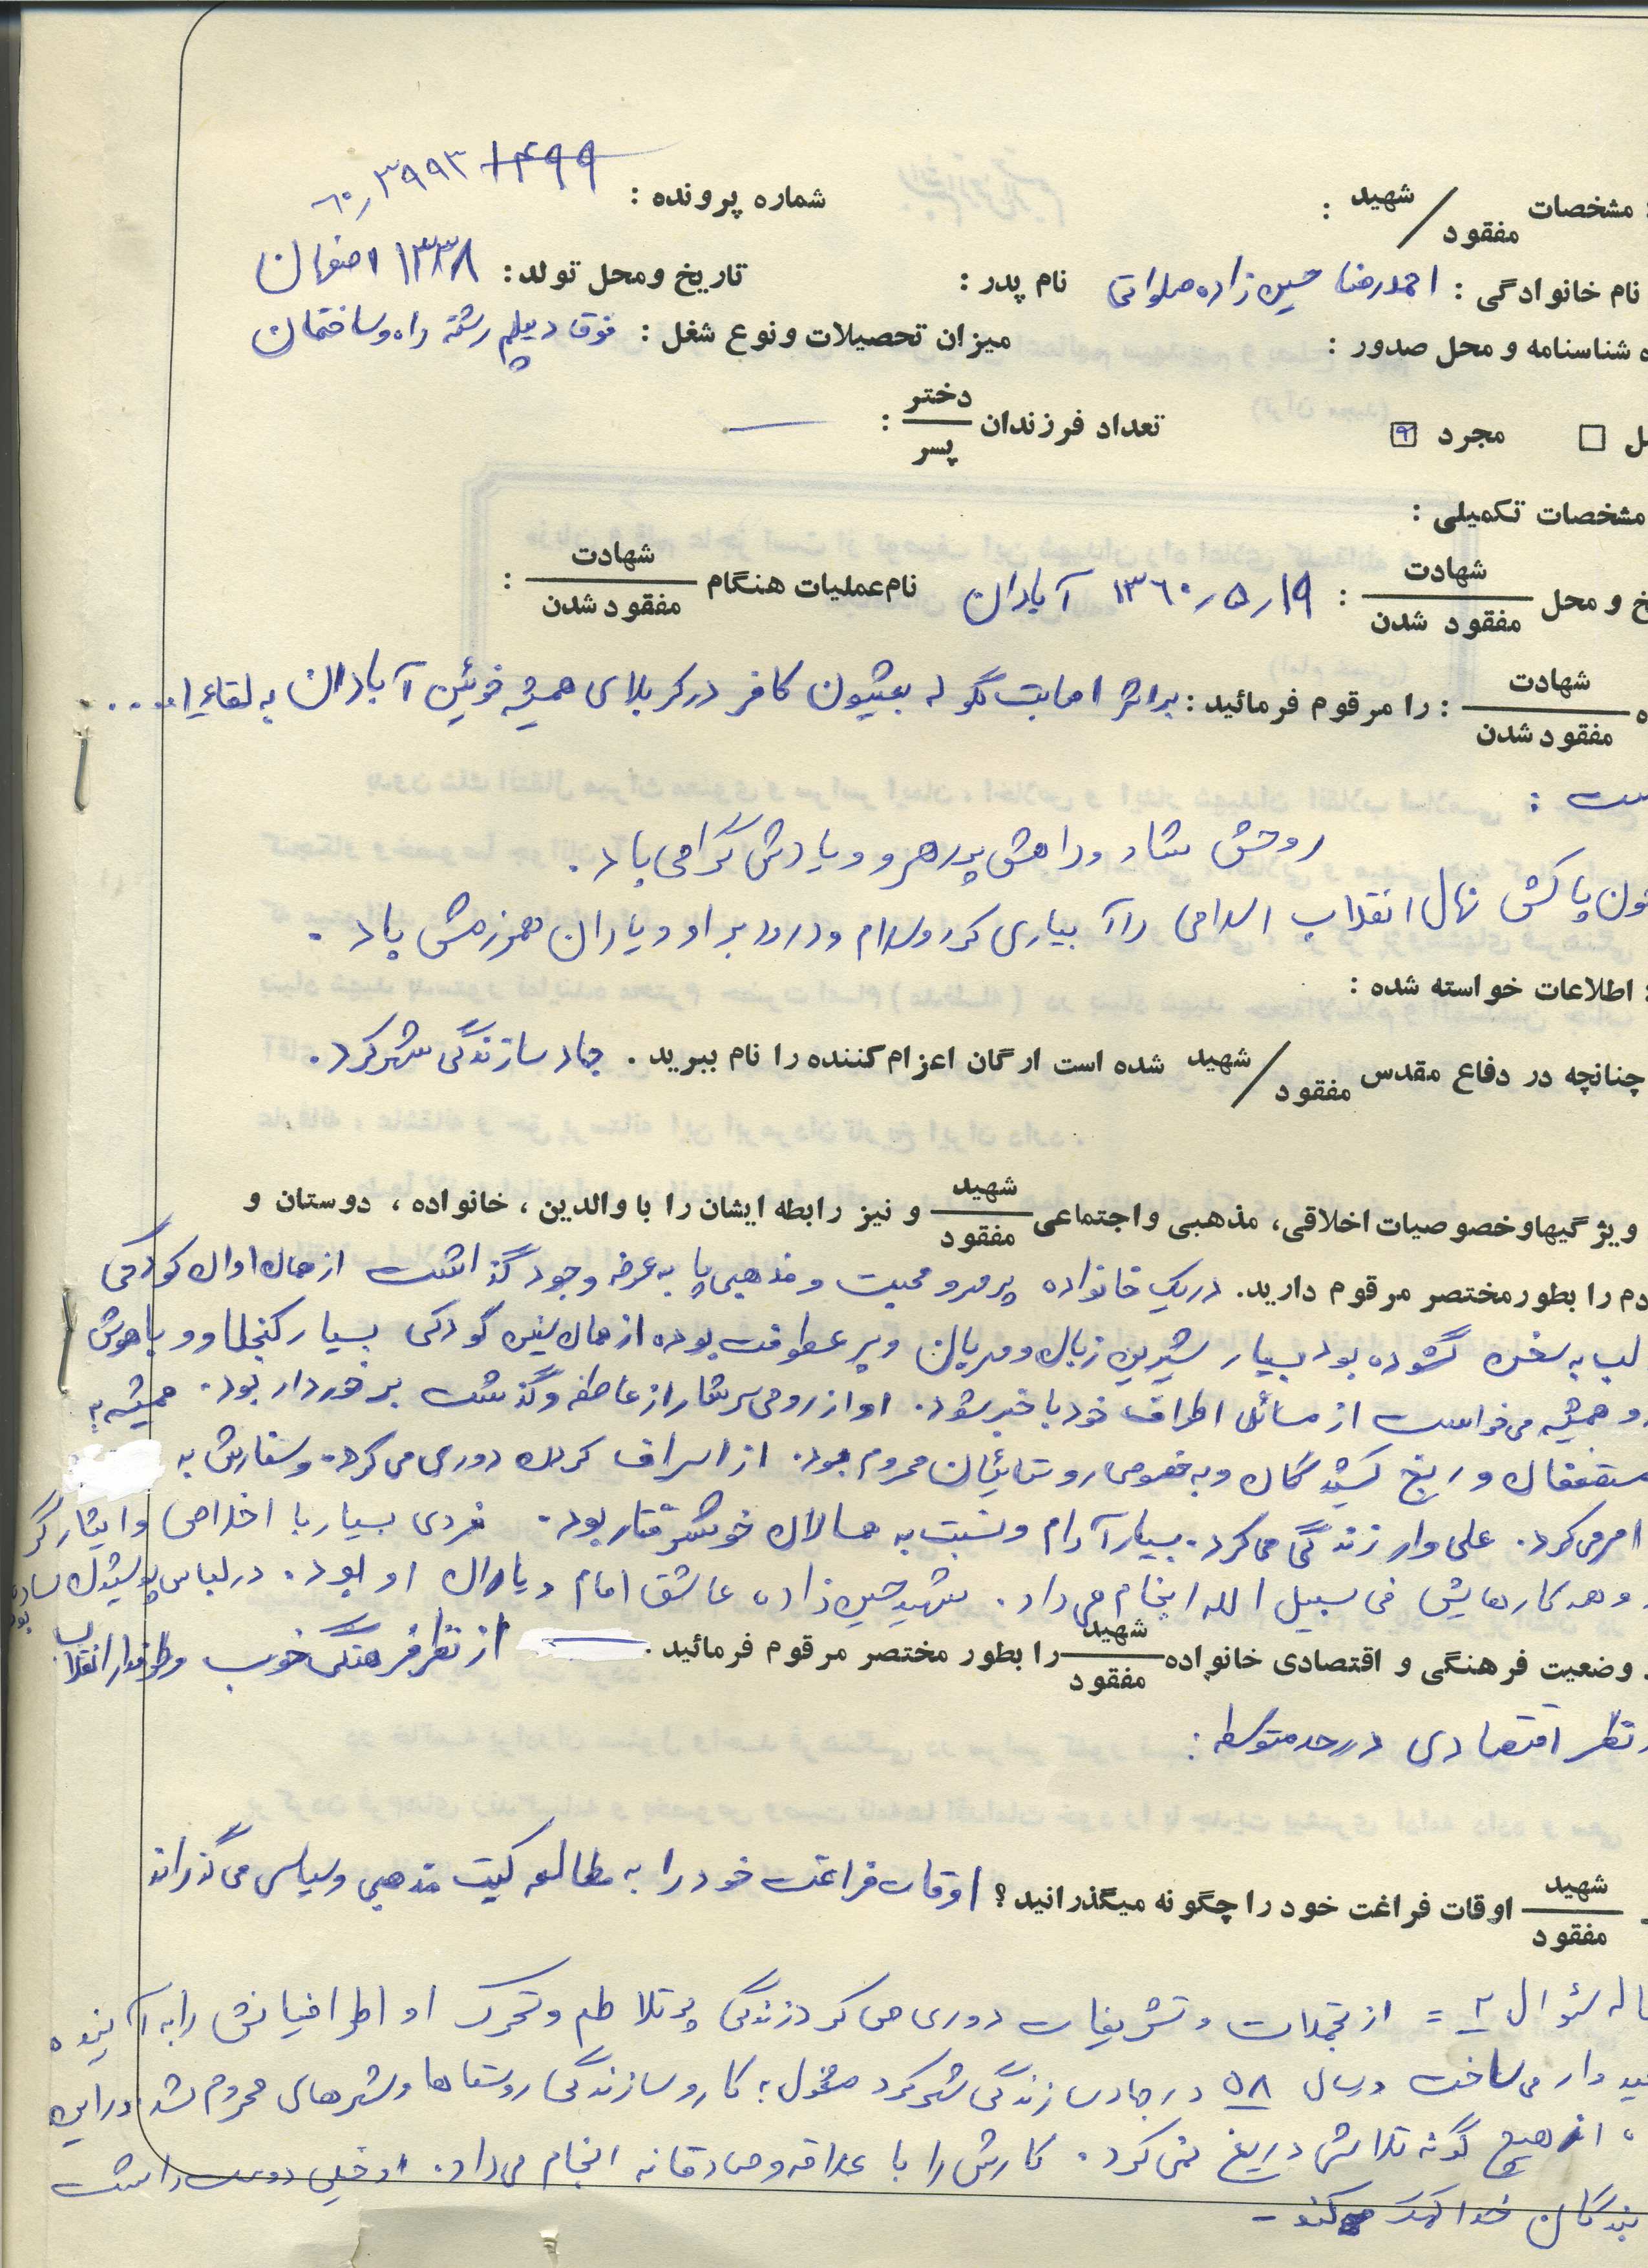 مشخصات شهید / مفقود : شماره پرونده : ۶۰٫۳۹۹۳ ۱۴۹۹
نام خانوادگی : احمدرضا حسین زاده صلواتی نام پدر : تاریخ ومحل تولد : ۱۳۳۸ اصفهان
شناسنامه و محل صدور : میزان تحصیلات ونوع شغل : فوق دیپلم رشته راه وساختمان
مجرد تعداد فرزندان دختر / پسر :
مشخصات تکمیلی :
و محل شهادت / مفقود شدن : ۱۳۶۰٫۵٫۱۹ آبادان نام عملیات هنگام شهادت / مفقود شدن :
شهادت / مفقود شدن : را مرقوم فرمائید : براثر اصابت گلوله بعثیون کافر درکربلای همیشه خونین آبادان به لقاء ا....
روحش شاد وراهش پررهرو ویادش گرامی باد .
پاکش نهال انقلاب اسلامی راآبیاری کرد وسلام ودرود بر او ویاران همرزمش باد .
اطلاعات خواسته شده :
چنانچه در دفاع مقدس شهید / مفقود شده است ارگان اعزام کننده را نام ببرید . جهاد سازندگی شهرکرد .
ویژگیهاوخصوصیات اخلاقی، مذهبی واجتماعی شهید / مفقود و نیز رابطه ایشان را با والدین ، خانواده ، دوستان و
را بطورمختصر مرقوم دارید. دریک خانواده پرمهرو محبت و مذهبی پا به عرصه وجود گذاشت از همان اوان کودکی
لب به سخن گشوده بود بسیار شیرین زبان ومهربان وپر عطوفت بوده از همان سنین کودکی بسیار کنجکاو و باهوش
و همیشه می خواست از مسائل اطراف خود با خبر شود . او از روحی سرشار از عاطفه وگذشت برخوردار بود . همیشه به
مستضعفان و رنج کشیدگان وبه خصوص روستائیان محروم بود . از اسراف کردن دوری می کرد . وسفارش به
امر می کرد . علی وار زندگی می کرد . بسیار آرام ونسبت به همسالان خوشرفتار بود . فردی بسیار با اخلاص وایثارگر
و همه کارهایش فی سبیل الله انجام می داد . شهید حسین زاده عاشق امام و یاران او بود . در لباس پوشیدن ساده بود
وضعیت فرهنگی و اقتصادی خانواده شهید / مفقود را بطور مختصر مرقوم فرمائید . از نظر فرهنگی خوب وطرفدار انقلاب
نظر اقتصادی درحد متوسط :
شهید / مفقود اوقات فراغت خود را چگونه میگذرانید ؟ اوقات فراغت خود را به مطالعه کتب مذهبی وسیاسی می گذراند
سئوال ۲ = از تجملات وتشریفات دوری می کرد زندگی پر تلاطم وتحرک او اطرافیانش را به آینده
می ساخت درسال ۵۸ درجهاد سازندگی شهرکرد مشغول به کار و سازندگی روستاها وشهرهای محروم شد . دراین
از هیچ گونه تلاشی دریغ نمی کرد . کارش را با علاقه وصادقانه انجام می داد . اوخیلی دوست داشت
بندگان خدا کمک کند -